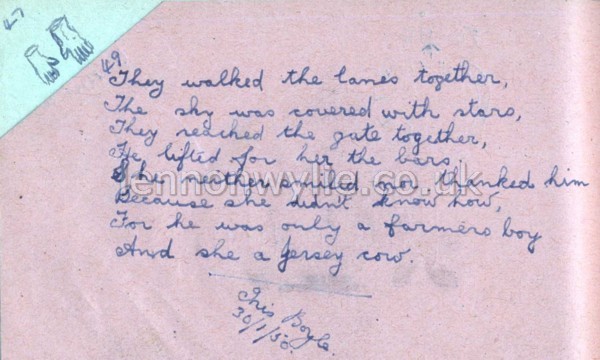 47
49
They walked the lanes together,
The sky was covered with stars,
They reached the gate together,
He lifted for her the bars
She neither smiled nor thanked him
Because she didn't know how,
For he was only a farmers boy
And she a Jersey cow.
Iris Boyle.
30/1/50.
lennonwylie.co.uk